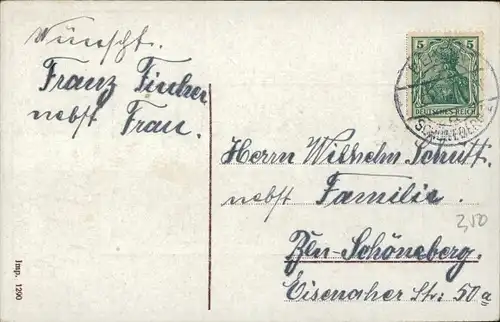 Wünscht.
Franz Fischer
nebst Frau.
5 5
DEUTSCHES REICH
Herrn Wilhelm Schütt.
nebst Familie.
Bln-Schöneberg.
Eisenacher Str: 50.a
2,50
Imp. 1290